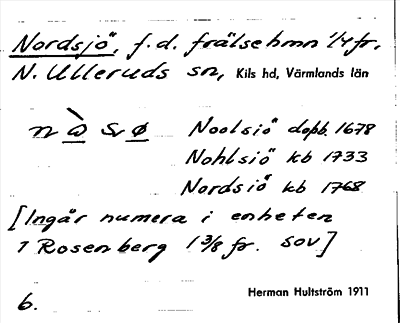 Nordsjö, f.d. frälsehmn 1/4 fr,
N. Ulleruds sn, Kils hd, Värmlands län
Noolsiö dopb. 1678
Nohlsiö kb 1733
Nordsiö kb 1768
[Ingår numera i enheten
1 Rosenberg 1 3/8 fr. SOV]
6. Herman Hultström 1911